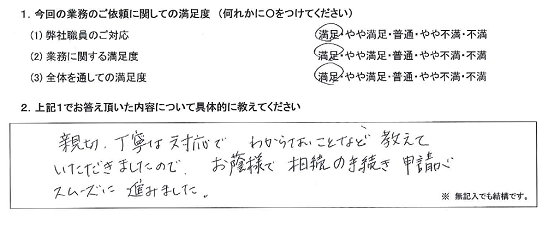 1．今回の業務のご依頼に関しての満足度　（何れかに○をつけてください）
(1) 弊社職員のご対応　満足・やや満足・普通・やや不満・不満
(2) 業務に関する満足度　満足・やや満足・普通・やや不満・不満
(3) 全体を通しての満足度　満足・やや満足・普通・やや不満・不満
2．上記1でお答え頂いた内容について具体的に教えてください
親切、丁寧な対応で　わからないことなど 教えて
いただきましたので、お蔭様で 相続の手続き 申請が
スムーズに 進みました。
※ 無記入でも結構です。